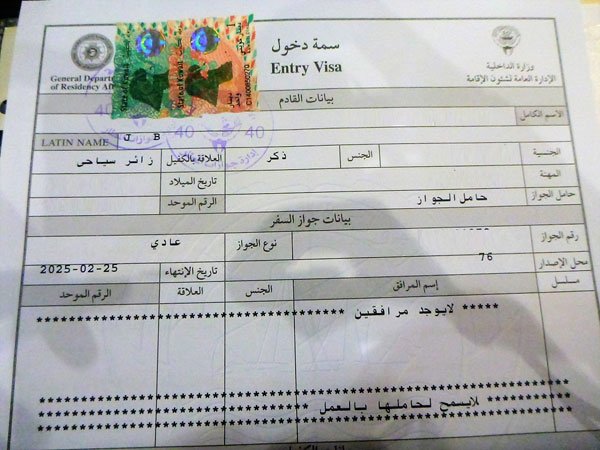 سمة دخول
Entry Visa
وزارة الداخلية
الإدارة العامة لشئون الإقامة
General Depart
of Residency Aff
بيانات القادم
الاسم الكامل
LATIN NAME J B
الجنسية الجنس ذكر العلاقة بالكفيل زائر سياحي
المهنة تاريخ الميلاد
حامل الجواز حامل الجواز الرقم الموحد
بيانات جواز السفر
رقم الجواز نوع الجواز عادي
محل الإصدار 76 تاريخ الإنتهاء 2025-02-25
مسلسل إسم المرافق الجنس العلاقة الرقم الموحد
***** لايوجد مرافقين *****
لايسمح لحاملها بالعمل
40 40 40